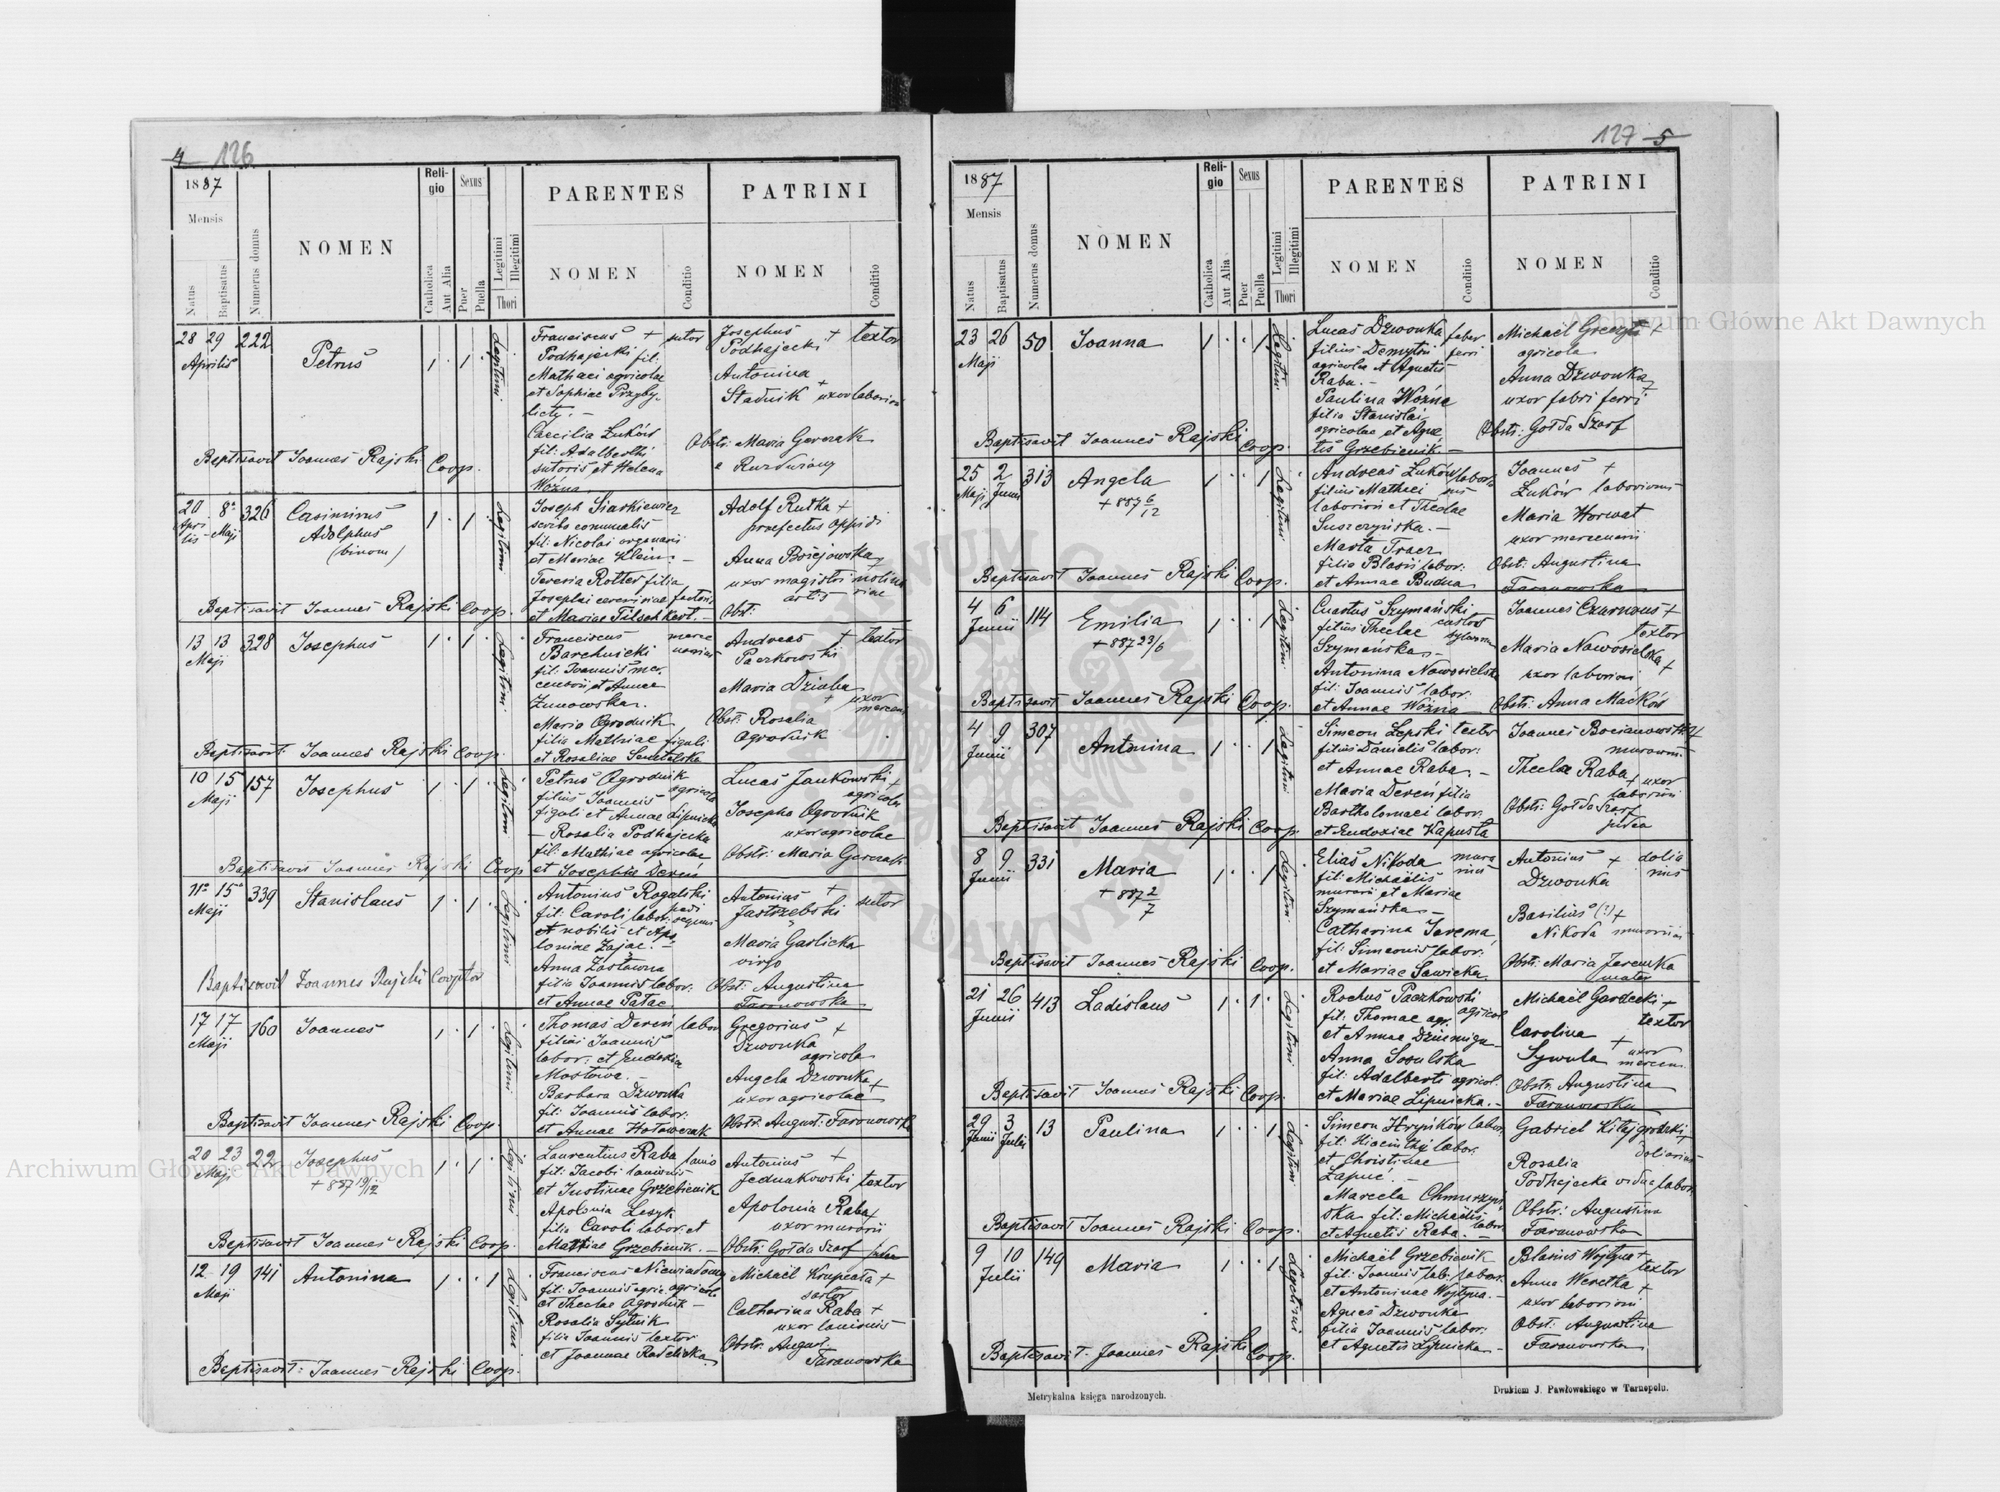 4 126
1887
Mensis
Natus
Baptisatus
Numerus domus
NOMEN
Religio
Catholica
Aut Alia
Sexus
Puer
Puella
Legitimi
Illegitimi
Thori
PARENTES
NOMEN
Conditio
PATRINI
NOMEN
Conditio
28 29 222
Aprilis
Petrus
1 1
Legitimi
Franciscus + sutor
Podhajecki fil:
Mathaei agricolae
et Sophiae Przyby-
licty. —
Caecilia Łuków
fil: Adalberti
sutoris et Helena
Woźna
Josephus + textor
Podhajecki
Antonina
Stadnik + uxor laboriosi
Obstr: Maria Gerczak
Baptisavit Joannes Rajski Coop.
20 8 326
Aprilis Maji
Casimirus
Adolphus
(binom)
1 1
Legitimi
Joseph Siarkiewicz
scriba comunalis
fil: Nicolai organarii
et Mariae Klein. —
Teresia Rotter filia
Josephi cerevisiae factoris
et Mariae Tilschkert. —
Adolf Rutka +
praefectus oppidi
Anna Bożejowska
uxor magistri molina
artis riae
Obst:
Baptisavit Joannes Rajski Coop.
13 13 328
Maji
Josephus
1 1
Legitimi
Franciscus merce
Barchnicki narius
fil: Joannis mer.
cenarii et Annae
Żunowska.
Maria Ogrodnik
filia Mathiae figuli
et Rosaliae
Andreas + textor
Paczkowski
Maria Dziuba
+ uxor
mercen.
Obst: Rosalia
Ogrodnik
Baptisavit: Joannes Rajski Coop.
10 15 157
Maji
Josephus
1 1
Legitimi
Petrus Ogrodnik
filius Joannis agricola
figuli et Annae Lipnicka
— Rosalia Podhajecka
fil: Mathiae agricolae
et Josephae Dereń
Lucas Jankowski +
agricola
Josepha Ogrodnik
uxor agricolae
Obstr: Maria Gerczak
Baptisavit Joannes Rajski Coop.
11 15 339
Maji
Stanislaus
1 1
Legitimi
Antonius Rogalski
fil: Caroli labor:
et nobilis et Apo
loniae Zając. —
Anna Zastawna
filia Joannis labor:
et Annae Pałac
Antonius + sutor
Jastrzębski
Maria Garlicka
virgo
Obst: Augustina
Faranowska
Baptisavit Joannes Rajski Cooptor
17 17 160
Maji
Joannes
1 1
Legitimi
Thomas Dereń labor
filius Joannis
labor: et Eudoxia
Mostowa. —
Barbara Dzwonka
fil: Joannis labor:
et Annae Hołowczak
Gregorius +
Dzwonka
agricola
Angela Dzwonka +
uxor agricolae
Obstr: August: Faranowska
Baptisavit Joannes Rajski Coop.
20 23 22
Maji
Josephus
+ 887 19/12
1 1
Legitimi
Laurentius Raba lanio
fil: Jacobi lanionis
et Justinae Grzebienik
Apolonia Lesyk
filia Caroli labor: et
Mariae Grzebienik. —
Antonius +
Jednakowski textor
Apolonia Raba +
uxor murarii
Obstr: Gołda Szarf judea
Baptisavit Joannes Rajski Coop.
12 19 141
Maji
Antonina
1 1
Legitimi
Franciscus Niewiadomy
fil: Joannis agric. agricola
et Theclae Ogrodnik —
Rosalia Sylnik
filia Joannis textor
et Joannae Radelicka
Michaël Krupcała +
sartor
Catharina Raba +
uxor lanionis
Obstr: August:
Faranowska
Baptisavit: Joannes Rajski Coop.
127 5
1887
Mensis
Natus
Baptisatus
Numerus domus
NOMEN
Religio
Catholica
Aut Alia
Sexus
Puer
Puella
Legitimi
Illegitimi
Thori
PARENTES
NOMEN
Conditio
PATRINI
NOMEN
Conditio
23 26 50
Maji
Joanna
1 1
Legitimi
Lucas Dzwonka faber
filius Demytri ferri
agricolae et Agnetis
Raba. —
Paulina Woźna
filia Stanislai
agricolae et Agne
tis Grzebienik —
Michaël Greczyn +
agricola
Anna Dzwonka
uxor fabri ferri +
Obstr: Gołda Szarf
Baptisavit Joannes Rajski Coop.
25 2 313
Maji Junii
Angela
+ 887 6/12
1 1
Legitimi
Andreas Łuków labor
filius Mathaei
laboriosi et Theclae
Suszczyńska. —
Marta Tracz
filia Blasii labor:
et Annae Budna
Joannes +
Łuków laboriosus
Maria Horwat
uxor mercenarii
Obst: Augustina
Faranowska
Baptisavit Joannes Rajski Coop.
4 6 114
Junii
Emilia
+ 887 23/6
1 1
Legitimi
Szymański
filius Theclae custos
Szymańska —
Antonina Nowosielska
fil: Joannis labor:
et Annae Woźna
Joannes Czarnous +
textor
Maria Nowosielska +
uxor laboriosi
Obstr: Anna Maćków
Baptisavit Joannes Rajski Coop.
4 9 307
Junii
Antonina
1 1
Legitimi
Simeon Lepski textor
filius Danielis labor:
et Annae Raba. —
Maria Dereń filia
Bartholomaei labor.
et Eudoxiae Kapusta
Joannes Bocianowski +
murarius
Thecla Raba + uxor
laboriosi
Obstr: Gołda Szarf
judea
Baptisavit Joannes Rajski Coop.
8 9 331
Junii
Maria
+ 887 2/7
1 1
Legitimi
Elias Nikoda mura
fil: Michaëlis rius
murarii et Mariae
Szymańska —
Catharina Jarema
fil: Simeonis labor:
et Mariae Sawicka
Antonius + dolia
Dzwonka rius
Basilius (?) +
Nikoda murarius
Obst: Maria Jaremka
mater
Baptisavit Joannes Rajski Coop.
21 26 413
Junii
Ladislaus
1 1
Legitimi
Rochus Paczkowski
fil: Thomae agr. agricol
et Annae
Anna Sosulska
fil: Adalberti agricol.
et Mariae Lipnicka. —
Michaël Gardecki +
textor
Carolina +
Sywula uxor
mercen.
Obstr: Augustina
Faranowska
Baptisavit Joannes Rajski Coop.
29 3 13
Junii Julii
Paulina
1 1
Legitimi
Simeon Hryńków labor.
fil: Hiacinthi labor.
et Christinae
Zapuć. —
Marcela Chmurzyń
ska fil: Michaëlis
et Agnetis Raba. — labor.
Gabriel Kitajgrodzki +
doliarius
Rosalia
Podhajecka vidua labor.
Obstr: Augustina
Faranowska
Baptisavit Joannes Rajski Coop.
9 10 149
Julii
Maria
1 1
Legitimi
Michaël Grzebienik
fil: Joannis lab: labor.
et Antoninae Wojtyna. —
Agnes Dzwonka
filia Joannis labor:
et Agnetis Lipnicka —
Blasius Wojtyna + textor
Anna Weretka +
uxor laboriosi
Obst: Augustina
Faranowska
Baptisavit: Joannes Rajski Coop.
Metrykalna księga narodzonych.
Drukiem J. Pawłowskiego w Tarnopolu.
Archiwum Główne Akt Dawnych
Archiwum Główne Akt Dawnych